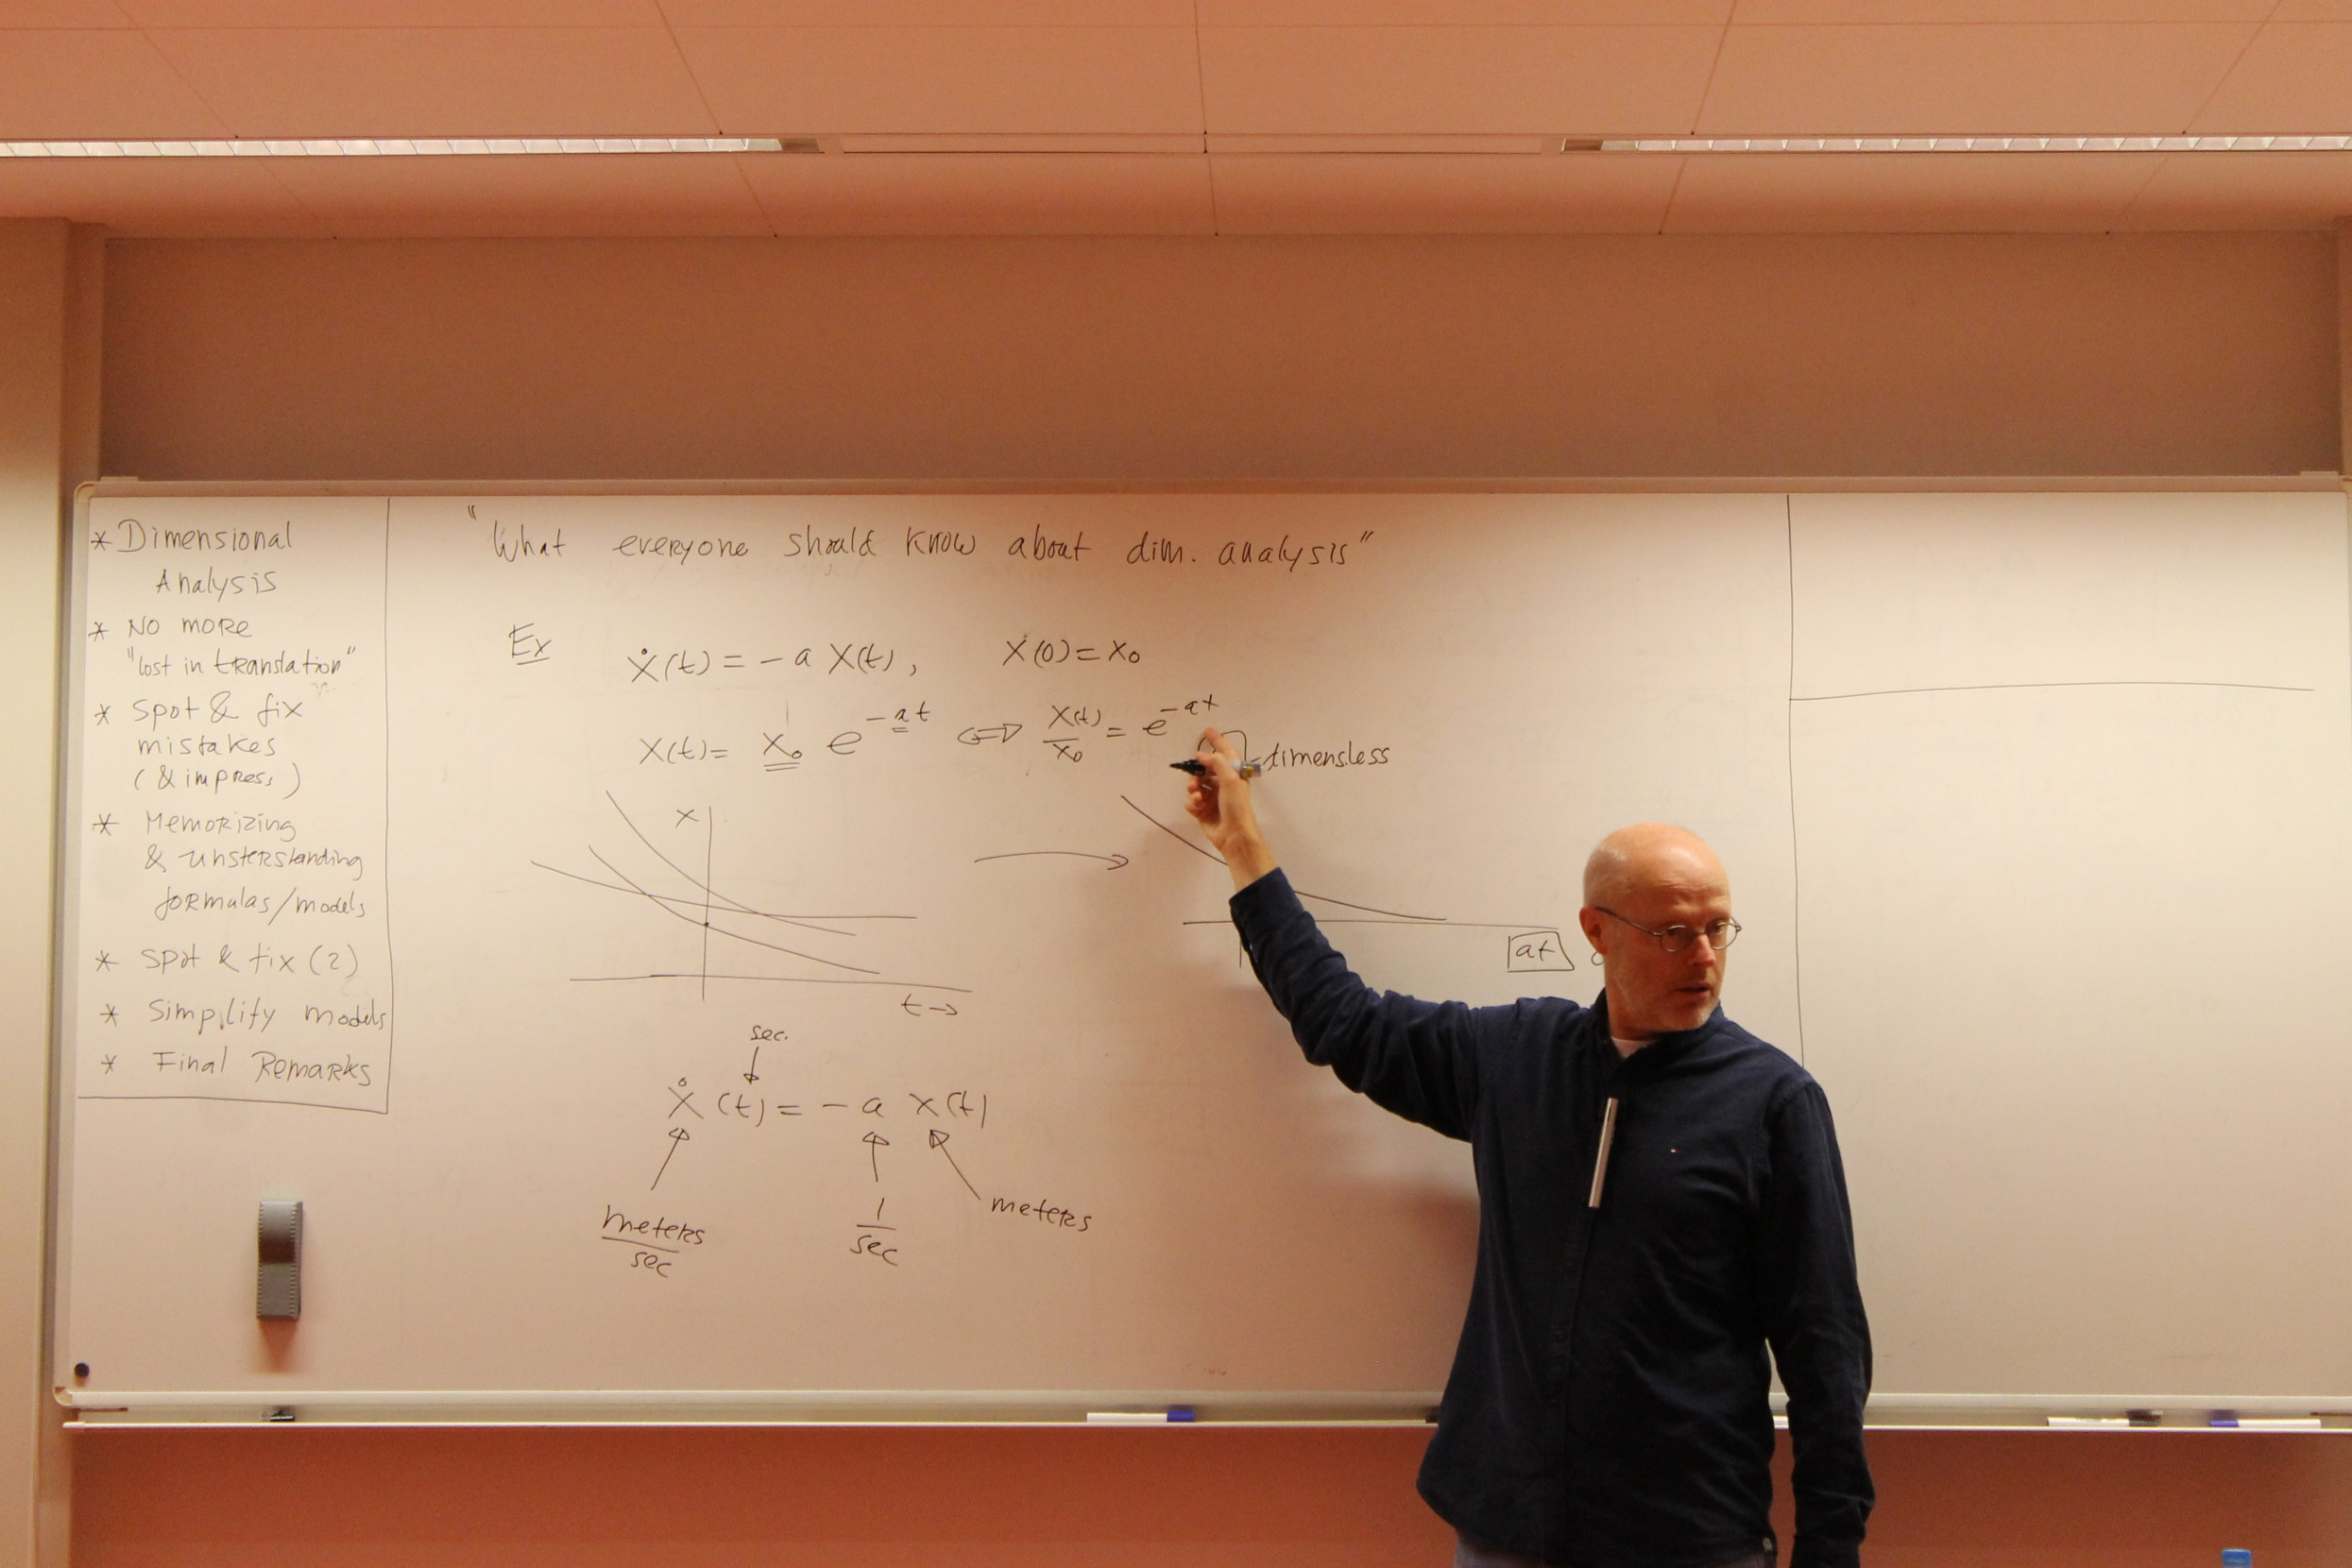 * Dimensional
Analysis
* No more
"lost in translation"
* Spot & fix
mistakes
(& impress)
* Memorizing
& unsterstanding
formulas/models
* Spot & fix (2)
* Simplify models
* Final Remarks
"What everyone should know about dim. analysis"
Ex
ẋ(t) = - a x(t), x(0) = x₀
x(t) = x₀ e^{-at} ⇔ x(t)/x₀ = e^{-at}
dimensless
x
t →
at
sec.
ẋ(t) = - a x(t)
meters/sec
1/sec
meters